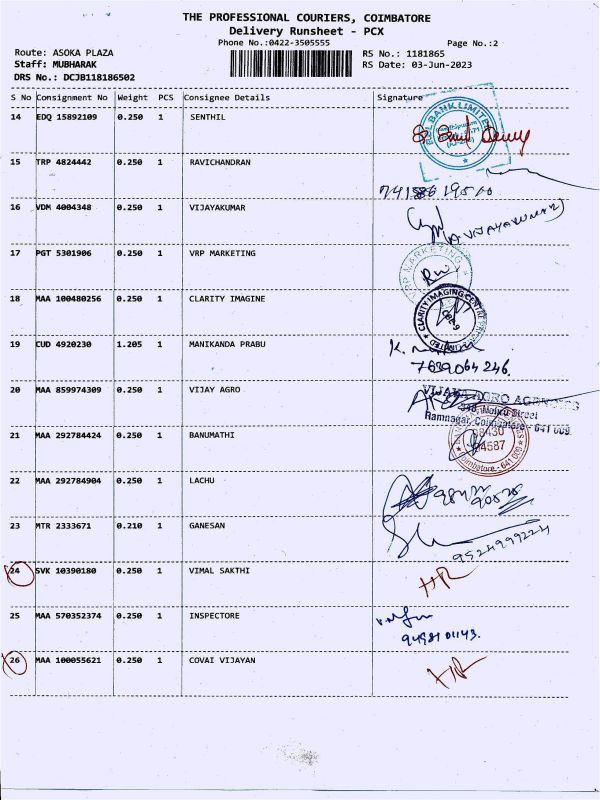 THE PROFESSIONAL COURIERS, COIMBATORE
Delivery Runsheet - PCX
Phone No.:0422-3505555
Page No.:2
Route: ASOKA PLAZA
RS No.: 1181865
Staff: MUBHARAK
RS Date: 03-Jun-2023
DRS No.: DCJB118186502
S No Consignment No Weight PCS Consignee Details Signature
14 EDQ 15892109 0.250 1 SENTHIL
BANK LIMITED
15 TRP 4824442 0.250 1 RAVICHANDRAN
16 VDM 4004348 0.250 1 VIJAYAKUMAR
VIJAYAKUMAR)
17 PGT 5301906 0.250 1 VRP MARKETING
VRP MARKETING
18 MAA 100480256 0.250 1 CLARITY IMAGINE
CLARITY IMAGING CENTRE
LIMITED
19 CUD 4920230 1.205 1 MANIKANDA PRABU
7639064246
20 MAA 859974309 0.250 1 VIJAY AGRO
VIJAYA AGRO AGENCIES
Street
Ramnagar, Coimbatore - 641 009
21 MAA 292784424 0.250 1 BANUMATHI
98430
94587
Coimbatore - 641 009
22 MAA 292784904 0.250 1 LACHU
23 MTR 2333671 0.210 1 GANESAN
9524999224
24 SVK 10390180 0.250 1 VIMAL SAKTHI
25 MAA 570352374 0.250 1 INSPECTORE
26 MAA 100055621 0.250 1 COVAI VIJAYAN